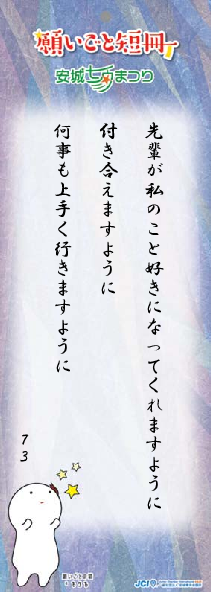 願いごと短冊
安城七夕まつり
先輩が私のこと好きになってくれますように
付き合えますように
何事も上手く行きますように
73
願いごと短冊
JCI